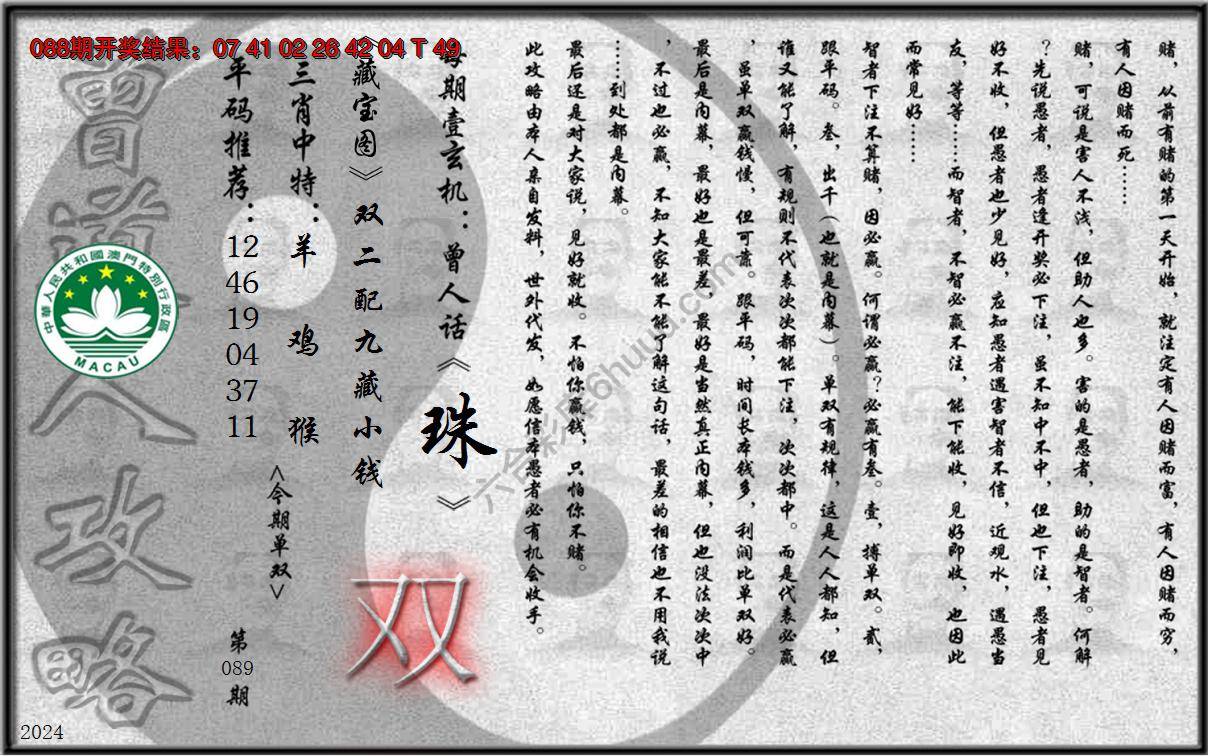 088期开奖结果：07 41 02 26 42 04 T 49
赌，从前有赌的第一天开始，就注定有人因赌而富，有人因赌而穷，
有人因赌而死……
赌，可说是害人不浅，但助人也多。害的是愚者，助的是智者。何解
？先说愚者，愚者逢开奖必下注，虽不知中不中，但也下注，愚者见
好不收，但愚者也少见好，应知愚者遇害智者不信，近观水，遇愚当
友，等等……而智者，不智必赢不注，能下能收，见好即收，也因此
而常见好……
智者下注不算赌，因必赢。何谓必赢？必赢有叁。壹，搏单双。贰，
跟平码。叁，出千（也就是内幕）。单双有规律，这是人人都知，但
谁又能了解，有规则不代表次次都能下注，次次都中。而是代表必赢
，虽单双赢钱慢，但可靠。跟平码，时间长本钱多，利润比单双好。
最后是内幕，最好也是最差，最好是当然真正内幕，但也没法次次中
，不过也必赢，不知大家能不能了解这句话，最差的相信也不用我说
……到处都是内幕。
最后还是对大家说，见好就收。不怕你赢钱，只怕你不赌。
此攻略由本人亲自发料，世外代发，如愿信本愚者必有机会收手。
每期壹玄机：曾人话《珠》
《藏宝图》双二配九藏小钱
双
三肖中特：羊 鸡 猴
<今期单双>
平码推荐：12 46 19 04 37 11
第089期
曾道人攻略
中華人民共和國澳門特別行政區
MACAU
2024